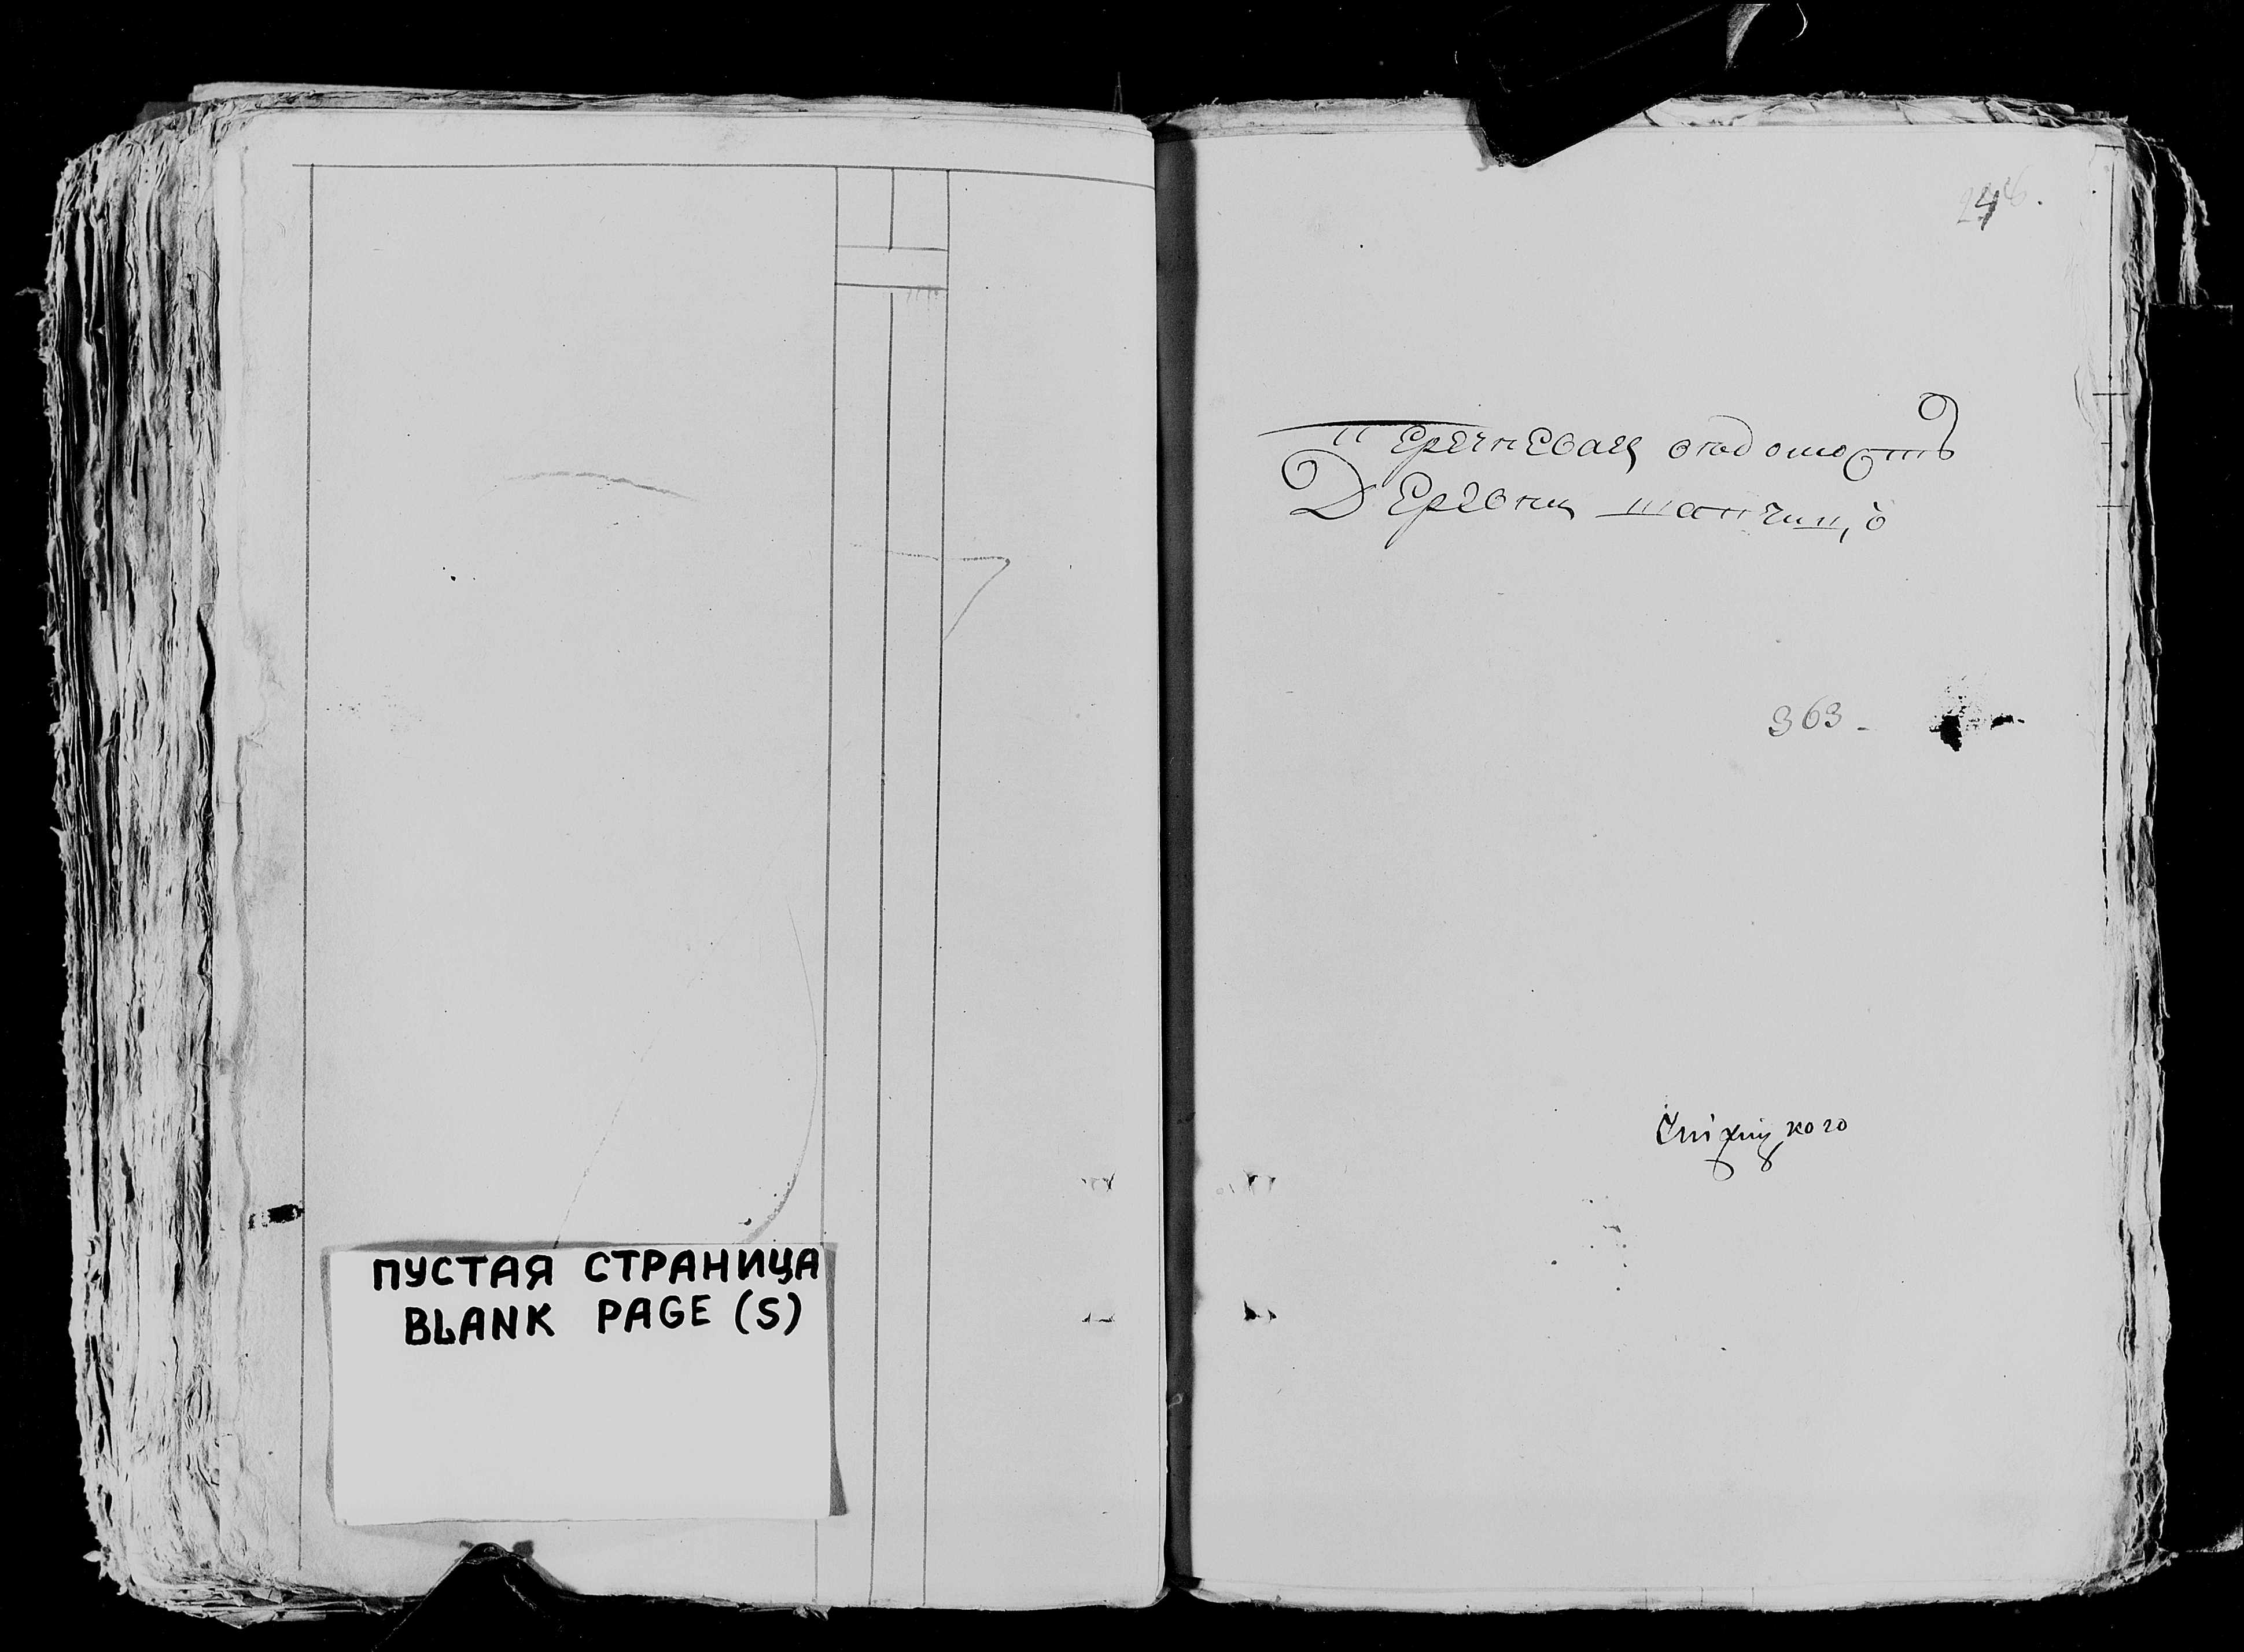 ПУСТАЯ СТРАНИЦА
BLANK PAGE (S)
Перечневая ведомость
Деревни
363 -